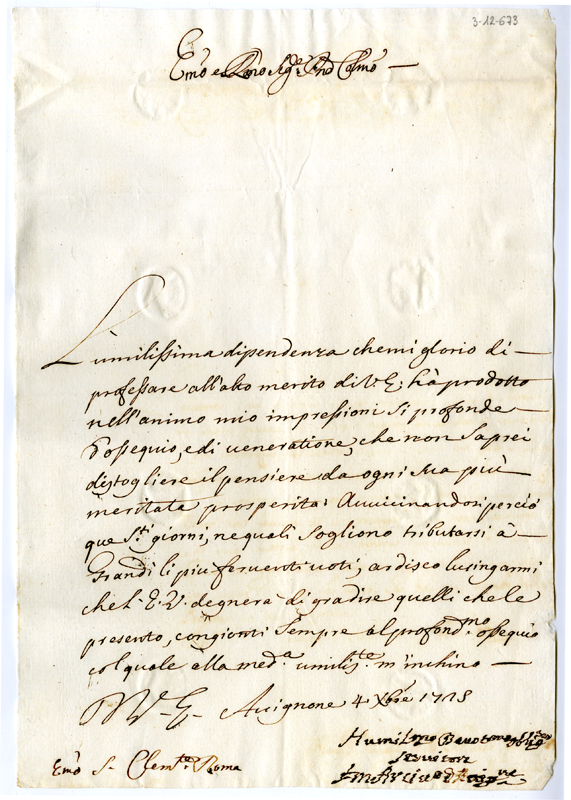 3-12-673
Emo e Rmo Sigr Prod Colmo
L'umilissima dipendenza che mi glorio di
professare all'alto merito di V. E; hà prodotto
nell'animo mio impressioni si profonde
d'ossequio, e di veneratione, che non saprei
distogliere il pensiere da ogni sua più
meritata prosperita: Avvicinandosi perciò
que Sti giorni, ne quali sogliono tributarsi à
Grandi li piu ferventi voti, ardisco lusingarmi
che l'E. V. degnerà di gradire quelli che le
presento, congionti sempre al profondmo ossequio
col quale alla meda umiliste m'inchino
Di V. E. Avignone 4 Xbre 1728
Humilmo
servitore
Emo S. Clemte Roma